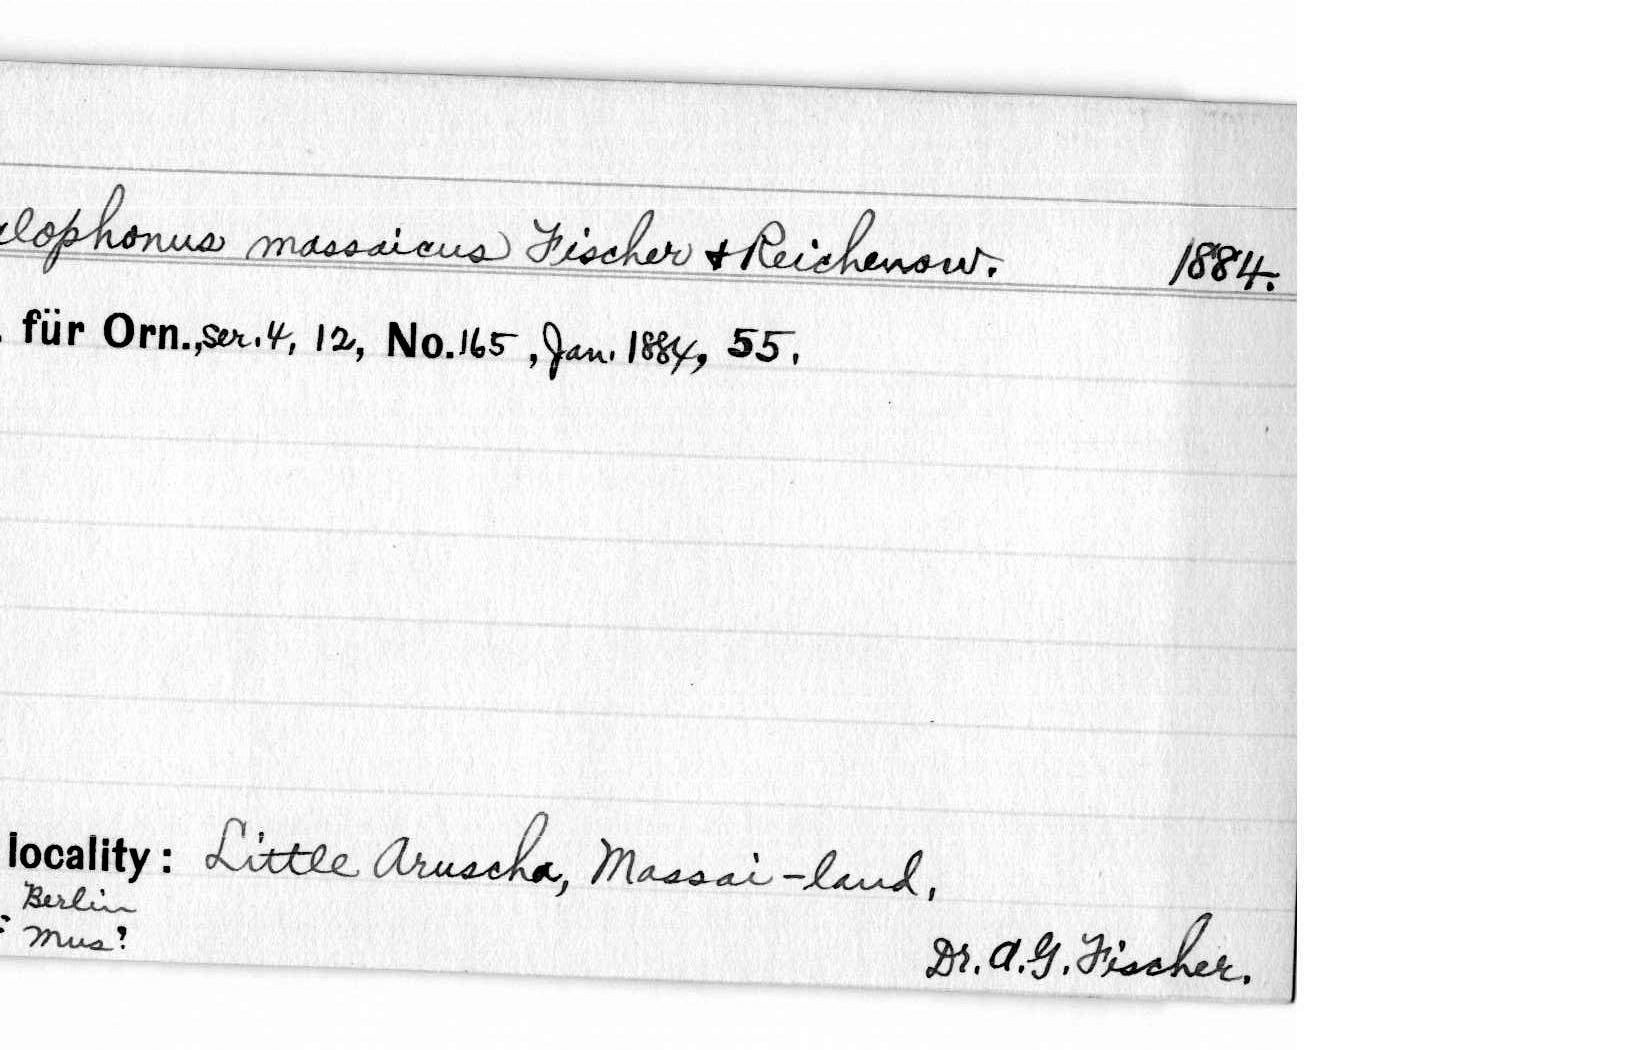 alophonus massaicus Fischer & Reichenow. 1884.
. für Orn., ser. 4, 12, No. 165, Jan. 1884, 55.
locality: Little Aruscha, Massai-land,
Berlin
: Mus?
Dr. A. G. Fischer.